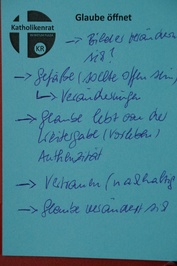 Katholikenrat
KR
Glaube öffnet
→ Bilder verändern
sich?
→ Gefäße (sollte offen sein)
↳ Veränderungen
→ Glaube lebt von der
Weitergabe (Vorleben)
Authentizität
→ Vertrauen (nachhaltig
→ Glaube verändert sich